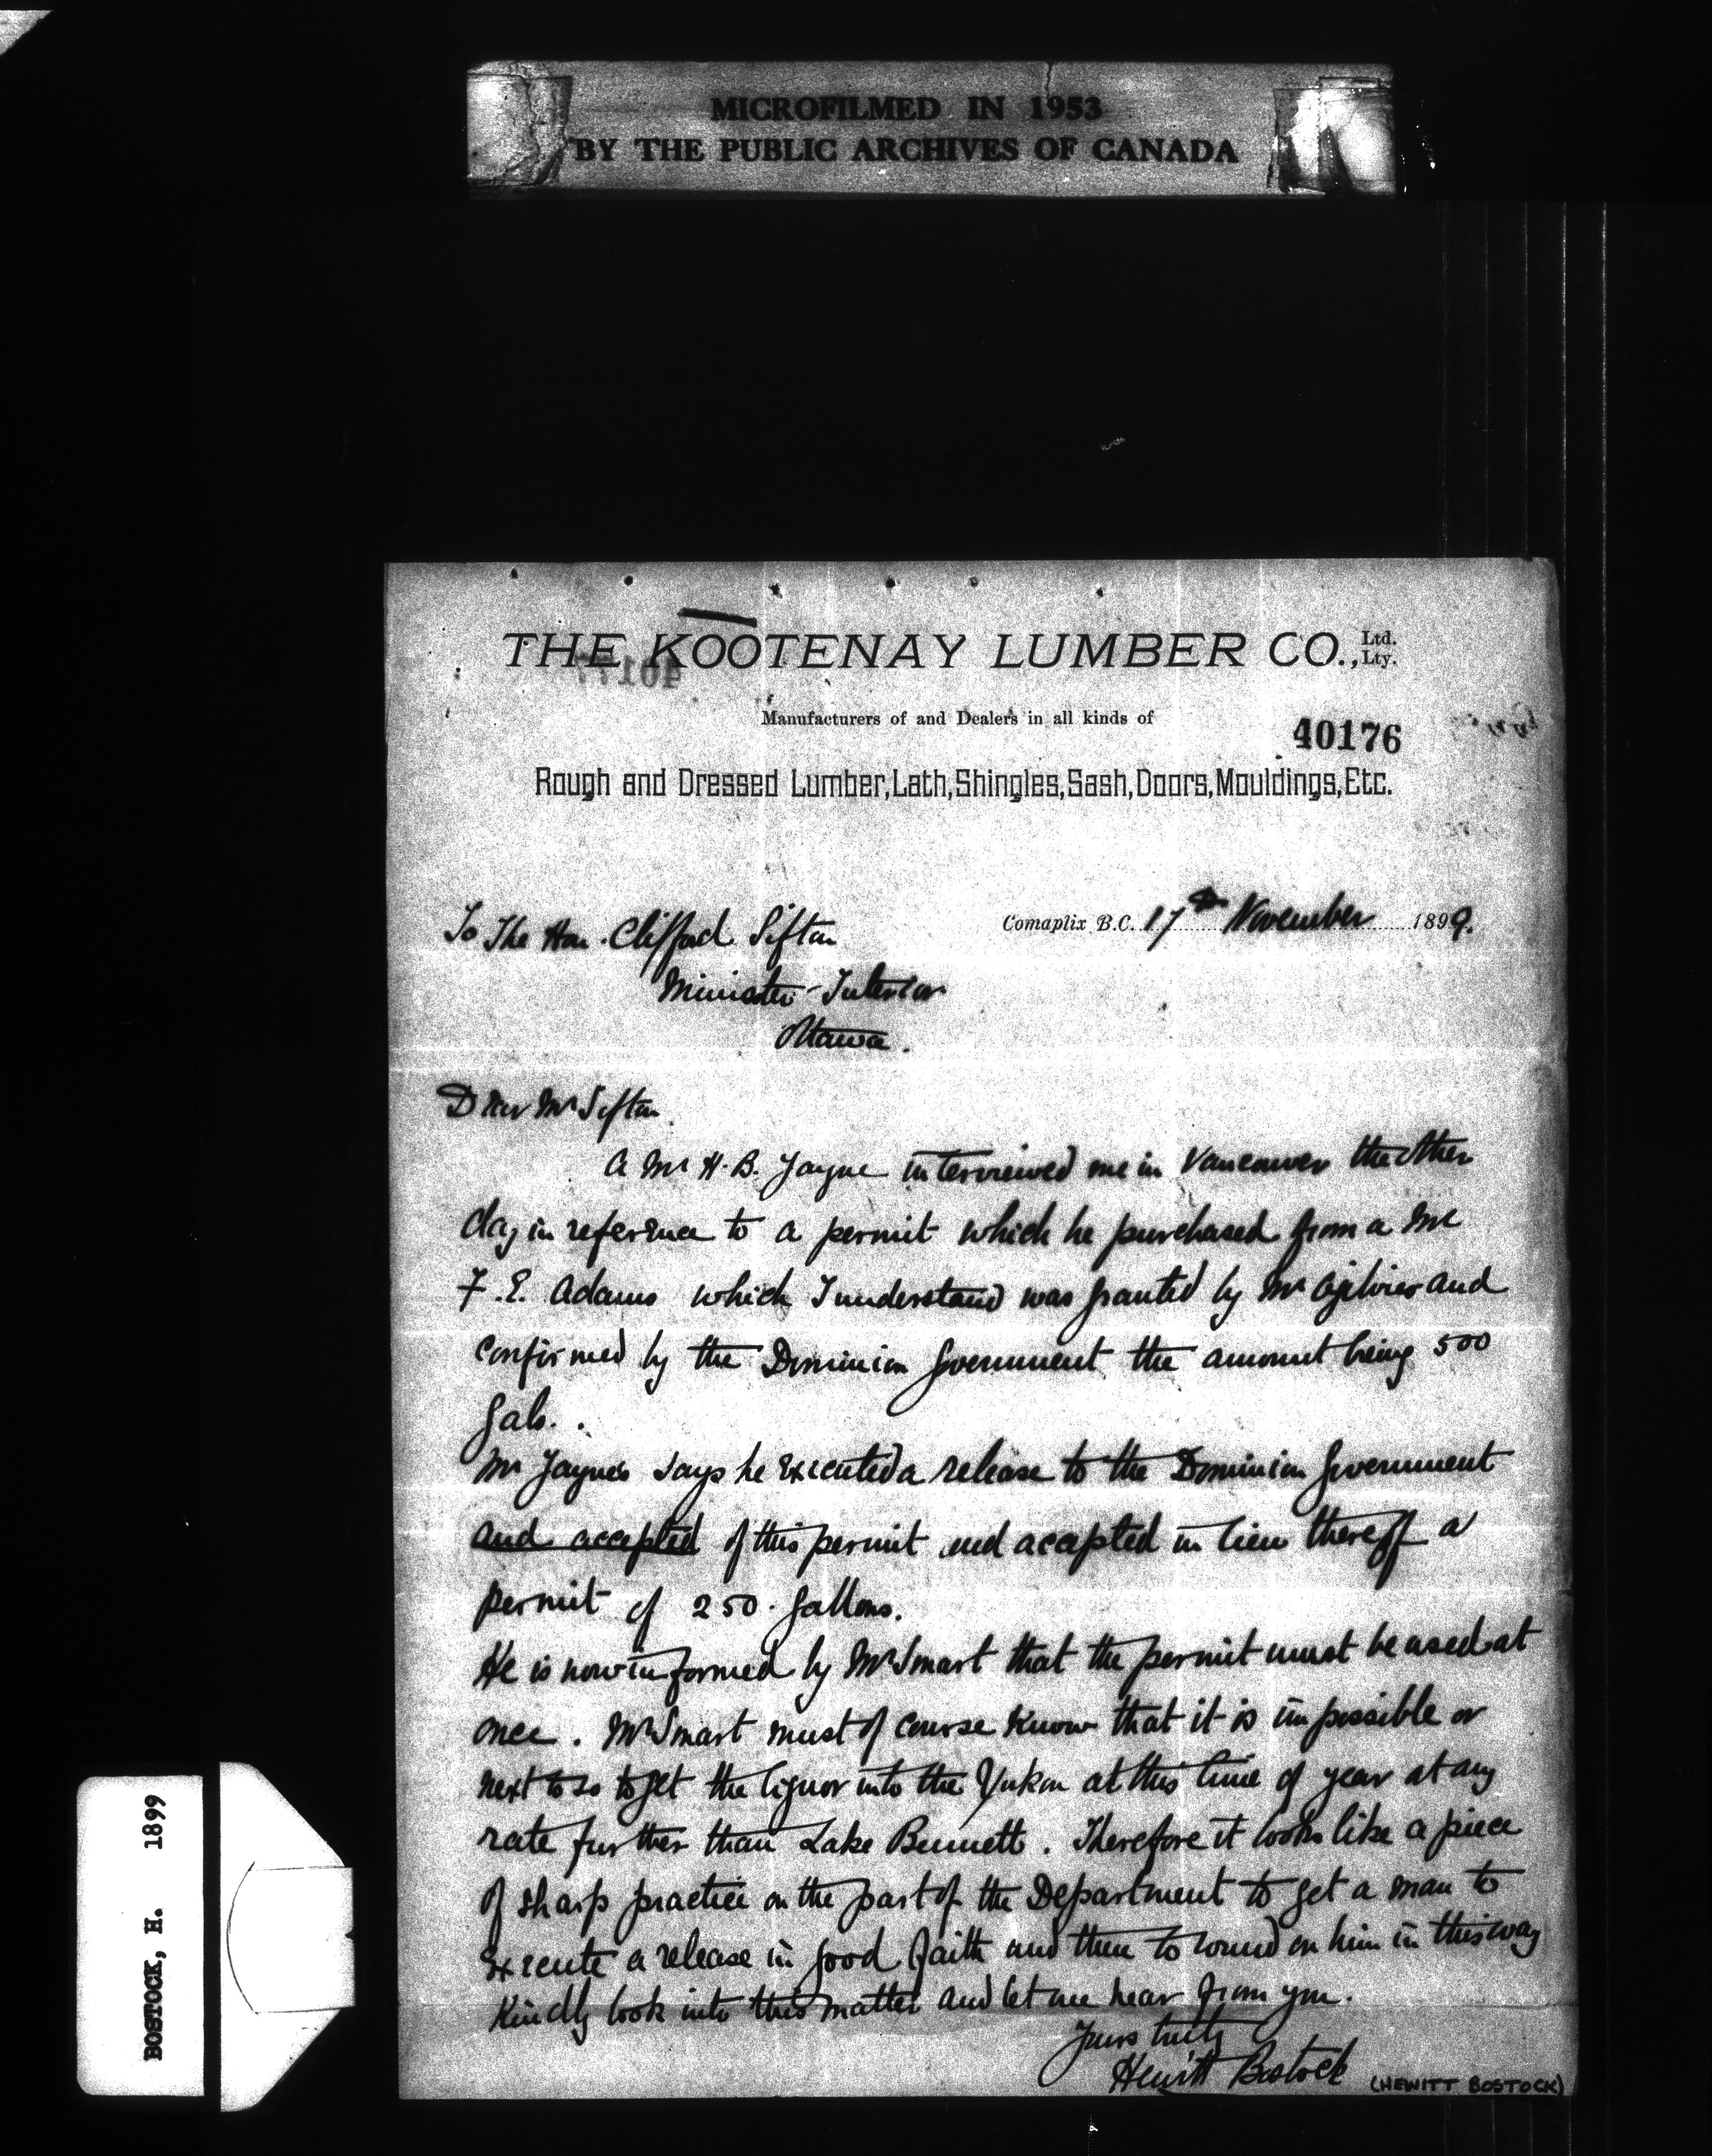 MICROFILMED IN 1953
BY THE PUBLIC ARCHIVES OF CANADA
THE KOOTENAY LUMBER CO., Ltd. Lty.
Manufacturers of and Dealers in all kinds of
40176
Rough and Dressed Lumber, Lath, Shingles, Sash, Doors, Mouldings, Etc.
Comaplix B.C. 17th November 1899.
To The Hon. Clifford Sifton
Minister Interior
Ottawa.
Dear Mr Sifton.
A Mr H. B. Jayne interviewed me in Vancouver the other
day in reference to a permit which he purchased from a Mr
F. E. Adams which I understand was granted by Mr Ogilvie and
confirmed by the Dominion Government the amount being 500
gals..
Mr Jaynes says he executed a release to the Dominion Government
and accepted of this permit and acepted in lieu thereoff a
permit of 250. gallons.
He is now informed by Mr Smart that the permit must be used at
once. Mr Smart must of course know that it is impossible or
next to so to get the liquor into the Yukon at this time of year at any
rate further than Lake Bennett. Therefore it looks like a piece
of sharp practice on the part of the Department to get a man to
execute a release in good faith and then to round on him in this way
Kindly look into this matter and let me hear from you.
Yours truly
Hewitt Bostock
(HEWITT BOSTOCK)
BOSTOCK, H. 1899